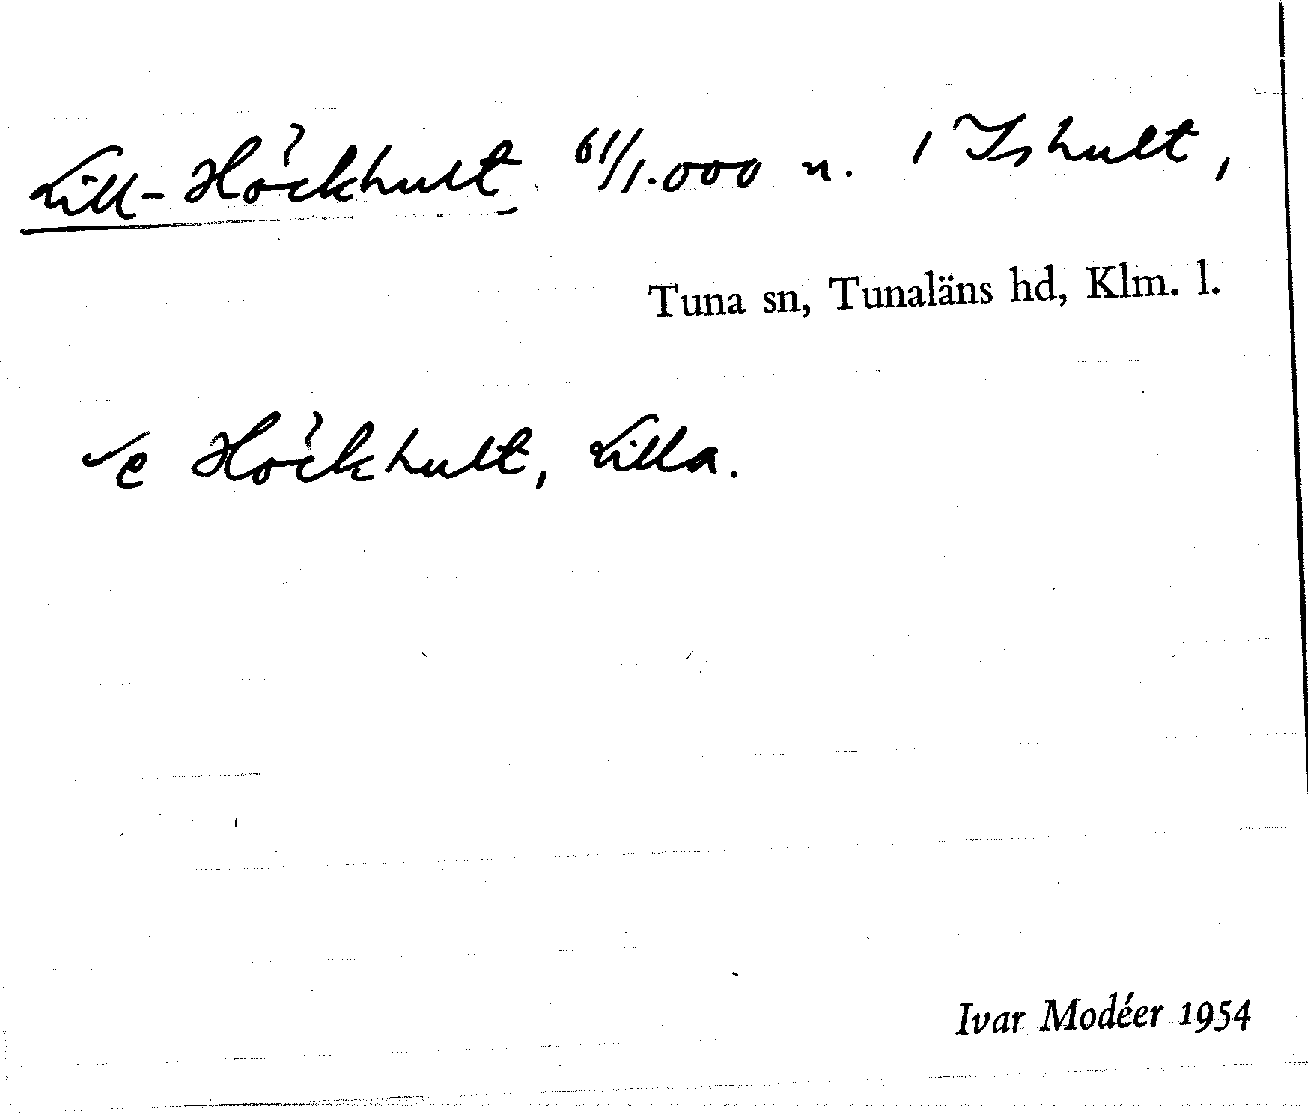 Lill-Höckhult 61/1.000 n. i Ishult,
Tuna sn, Tunaläns hd, Klm. l.
Höckhult, Lilla.
Ivar Modéer 1954